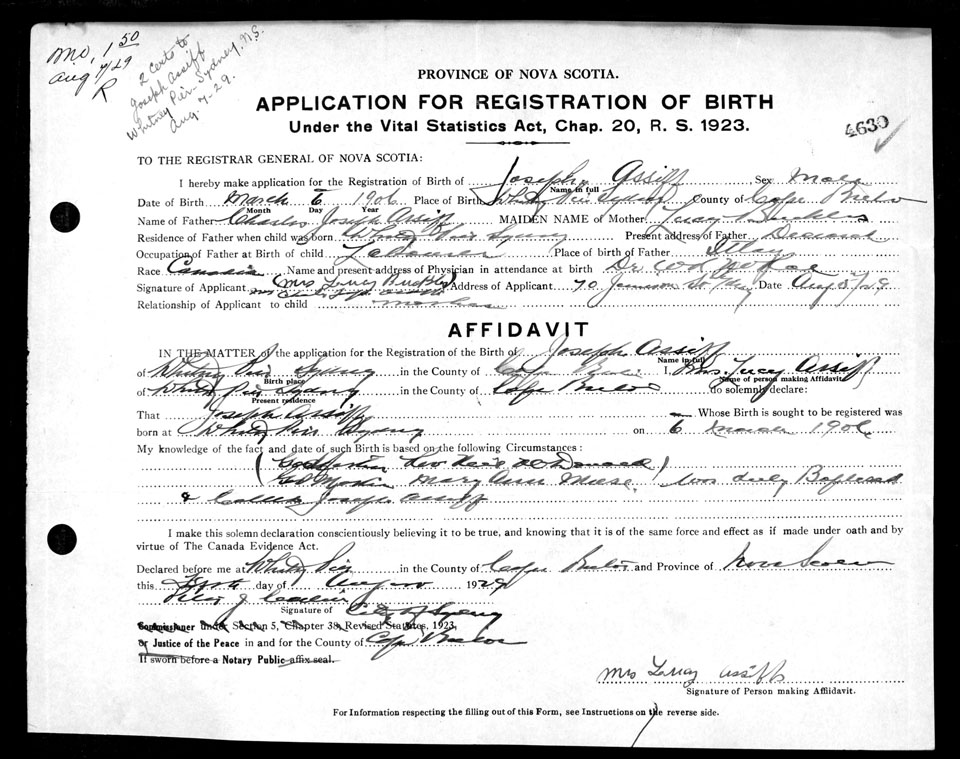 Mo, 1 50
Aug 7/29
R
2 Certs to
Joseph Assiff
Whitney Pier Sydney, N.S.
Aug. 7-29.
PROVINCE OF NOVA SCOTIA.
APPLICATION FOR REGISTRATION OF BIRTH
Under the Vital Statistics Act, Chap. 20, R. S. 1923.
4630
TO THE REGISTRAR GENERAL OF NOVA SCOTIA:
I hereby make application for the Registration of Birth of Joseph Assiff Sex Male
Name in full
Date of Birth March 6 1906 Place of Birth Whitney Pier Sydney County of Cape Breton
Month Day Year
Name of Father Charles Joseph Assiff MAIDEN NAME of Mother Lucy
Residence of Father when child was born Whitney Pier Sydney Present address of Father Deceased
Occupation of Father at Birth of child Laborer Place of birth of Father Italy
Race Canadian Name and present address of Physician in attendance at birth Dr.
Signature of Applicant Mrs Address of Applicant 70 St Date Aug /29
Relationship of Applicant to child mother
AFFIDAVIT
IN THE MATTER of the application for the Registration of the Birth of Joseph Assiff
Name in full
of Whitney Pier Sydney in the County of Cape Breton I, Mrs. Lucy Assiff
Birth place Name of person making Affidavit
of Whitney Pier Sydney in the County of Cape Breton do solemnly declare:
Present residence
That Joseph Assiff Whose Birth is sought to be registered was
born at Whitney Pier Sydney on 6 March 1906
My knowledge of the fact and date of such Birth is based on the following Circumstances:
(
Mary Ann ) was duly Baptised
& Called Joseph Assiff
I make this solemn declaration conscientiously believing it to be true, and knowing that it is of the same force and effect as if made under oath and by
virtue of The Canada Evidence Act.
Declared before me at Whitney Pier in the County of Cape Breton and Province of Nova Scotia
this day of August 1929
Signature of City of Sydney
Commissioner under Section 5, Chapter 38, Revised Statutes, 1923,
or Justice of the Peace in and for the County of Cape Breton
If sworn before a Notary Public affix seal.
Mrs Lucy Assiff
Signature of Person making Affidavit.
For Information respecting the filling out of this Form, see Instructions on the reverse side.